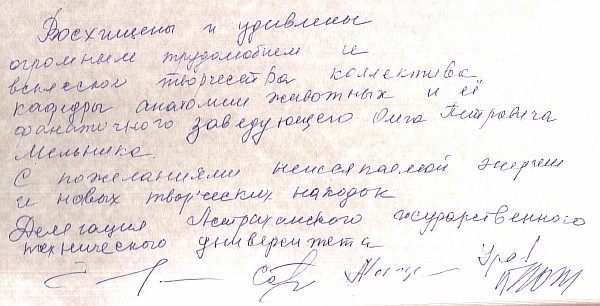 Восхищены и удивлены
огромным трудолюбием и
всплеском творчества коллектива
кафедры анатомии животных и её
фанатичного заведующего Олега Петровича
Мельника.
С пожеланиями неиссякаемой энергии
и новых творческих находок
Делегация Астраханского государственного
технического университета
Ура!